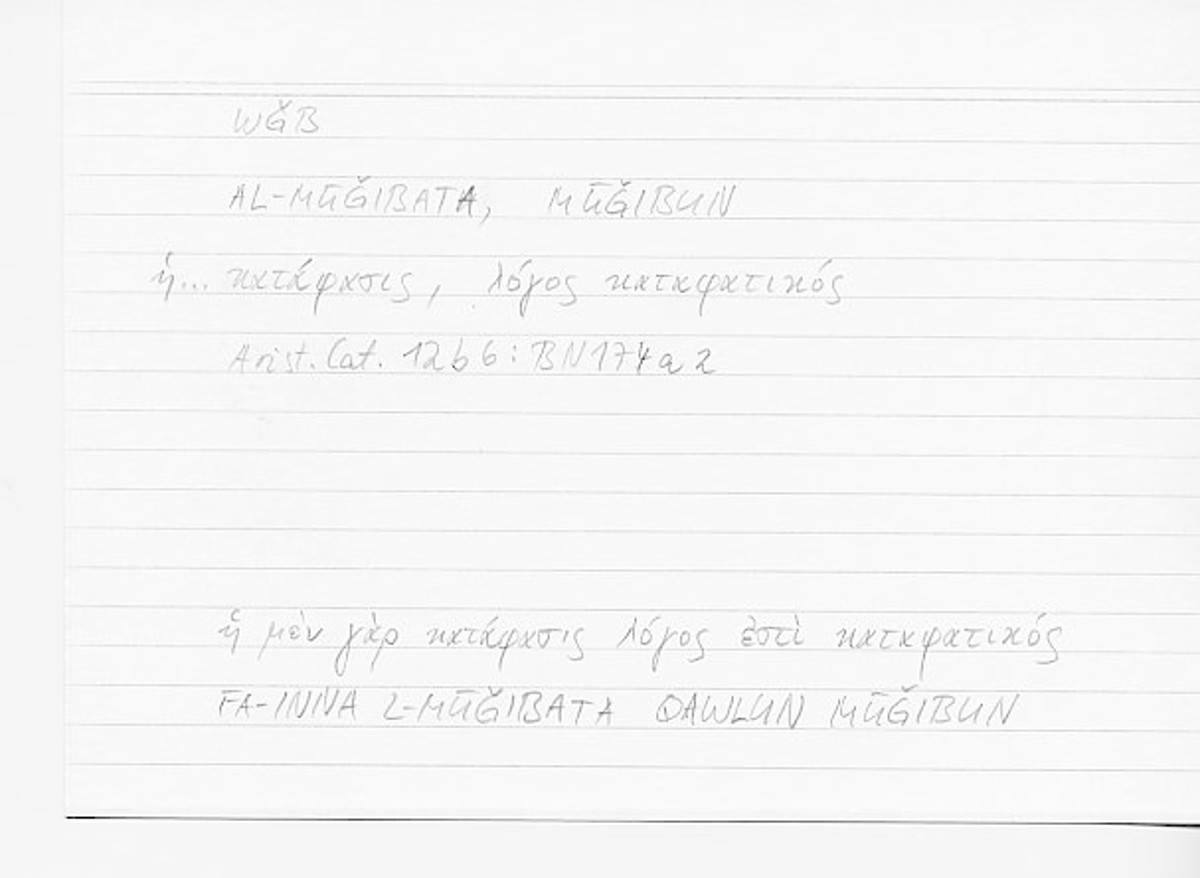 WǦB
AL-MŪǦIBATA, MŪǦIBUN
ἡ... κατάφασις, λόγος καταφατικός
Arist. Cat. 12b6: BN174a2
ἡ μὲν γὰρ κατάφασις λόγος ἐστὶ καταφατικός
FA-INNA L-MŪǦIBATA QAWLUN MŪǦIBUN